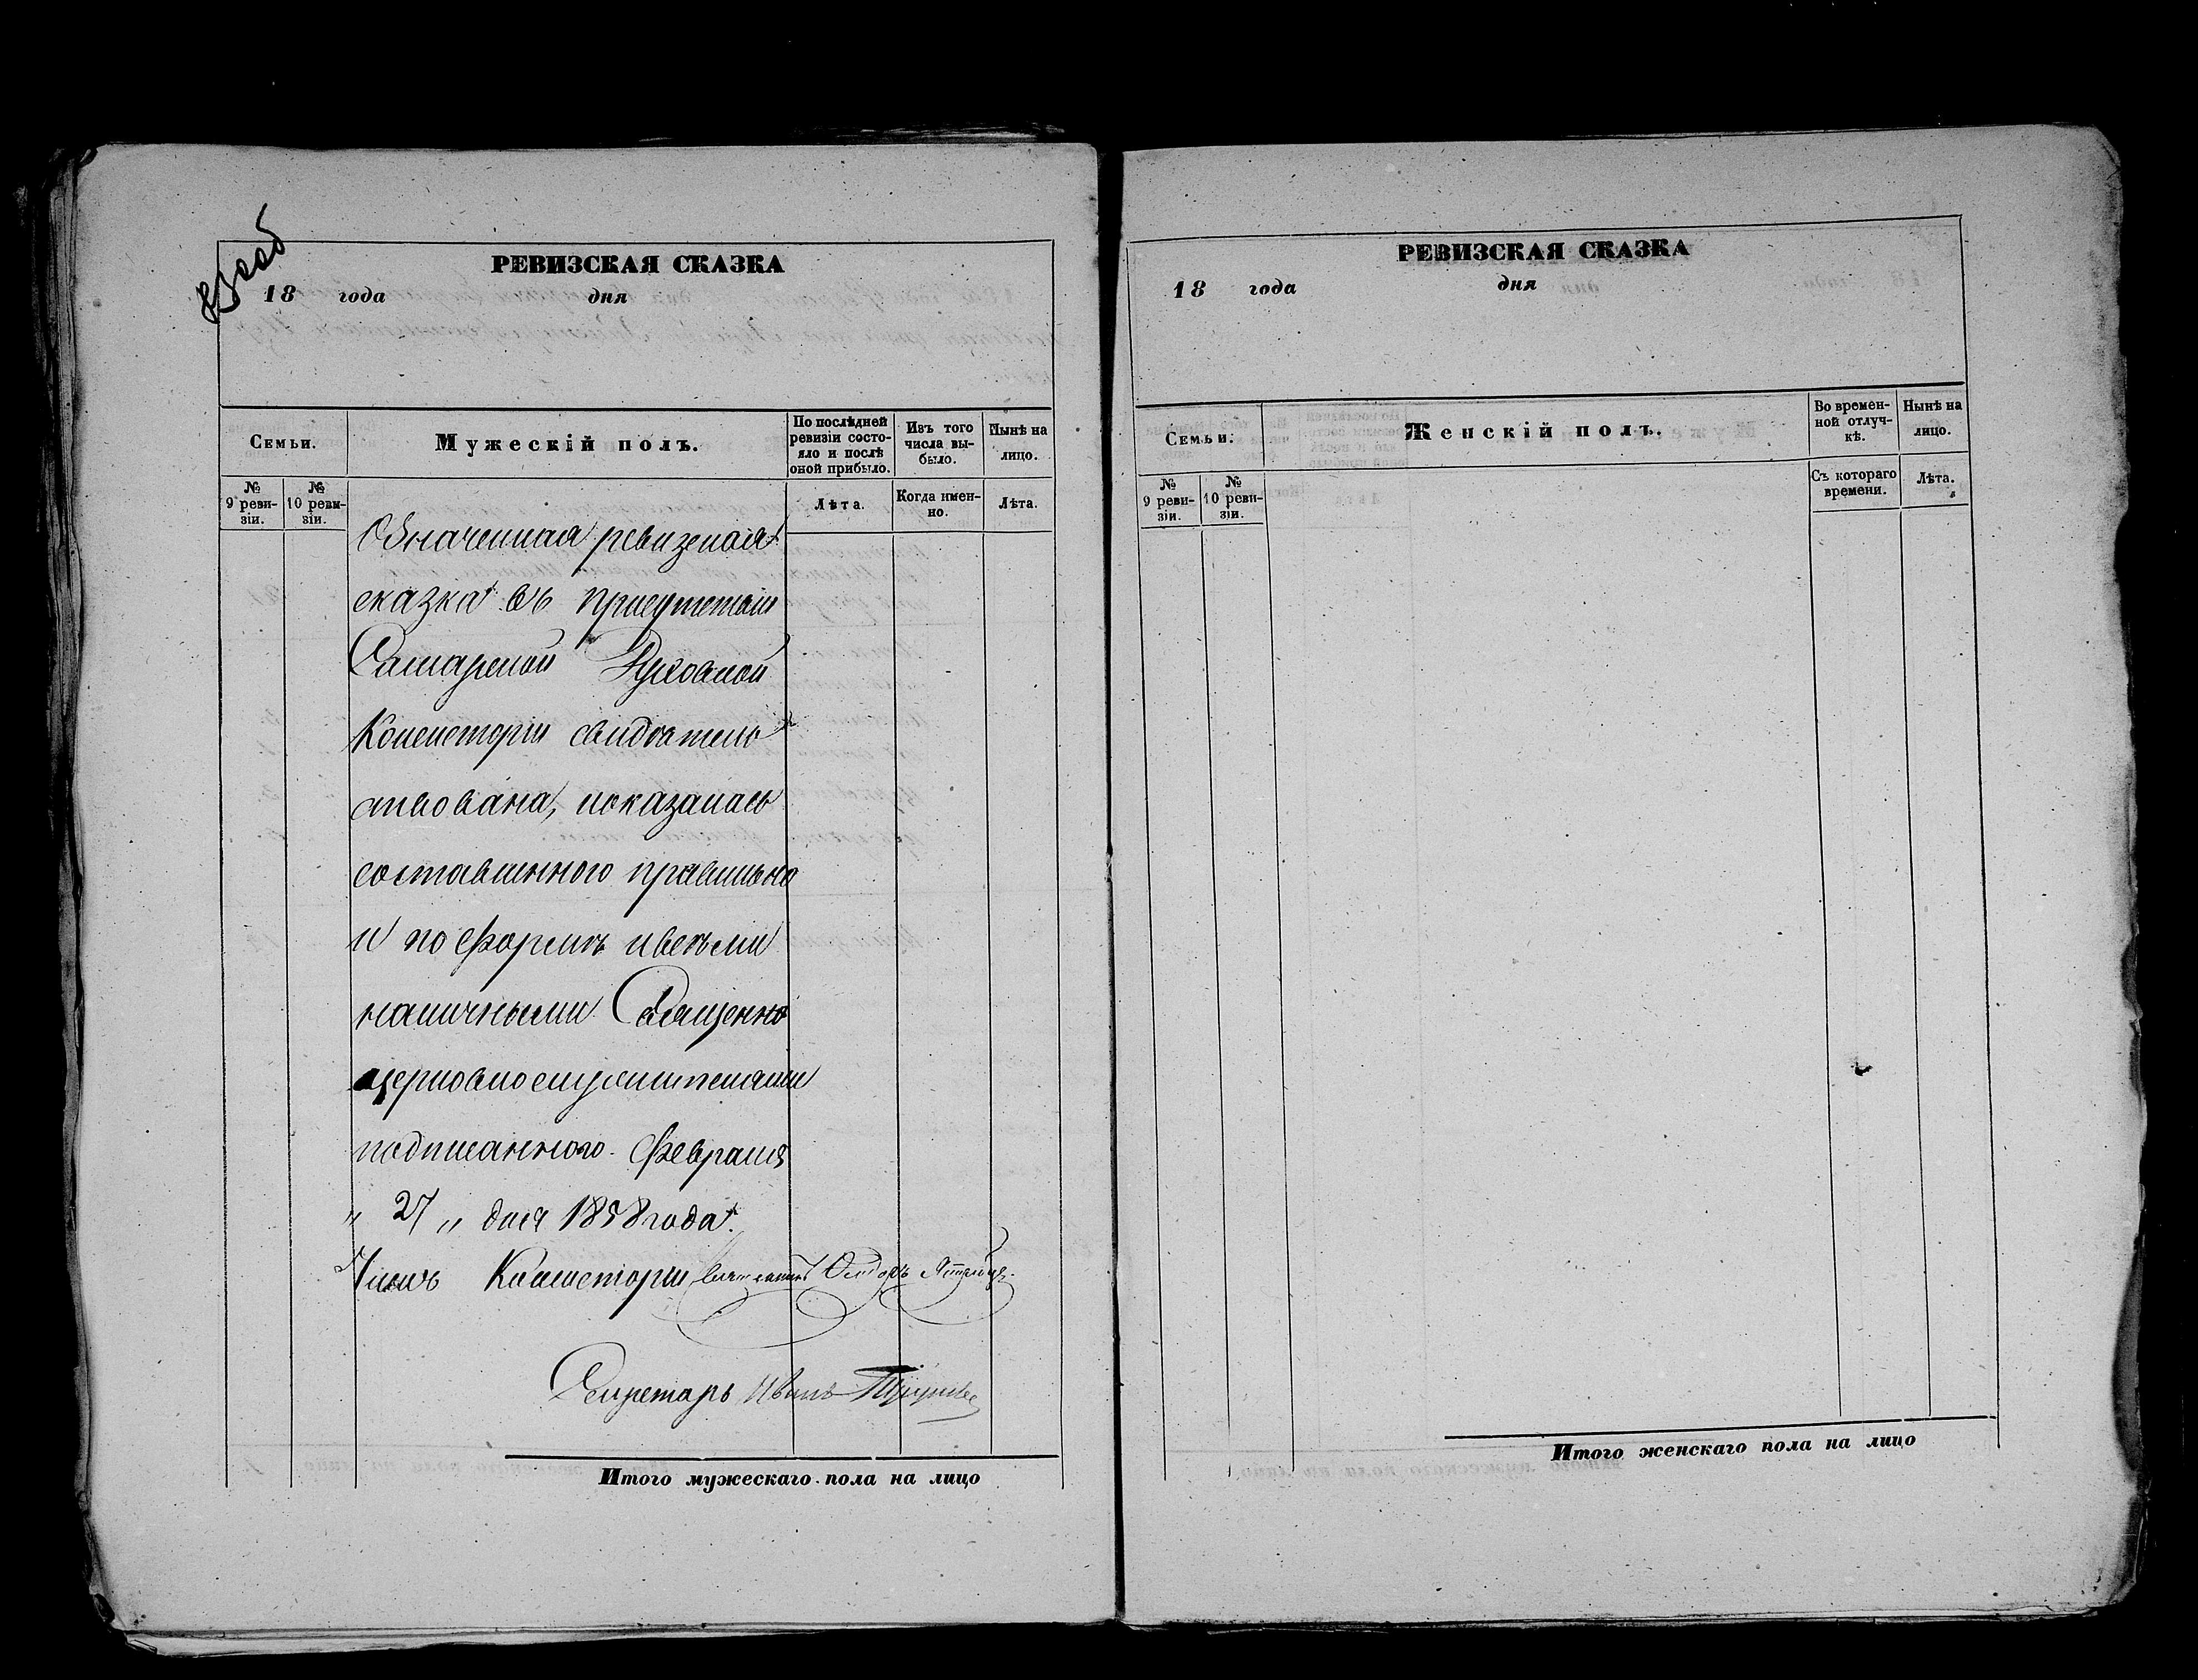 РЕВИЗСКАЯ СКАЗКА
18 года дня
Семьи.
Мужескій полъ.
По послѣдней ревизіи состояло и послѣ оной прибыло.
Изъ того числа выбыло.
Нынѣ на лицо.
№ 9 ревизіи.
№ 10 ревизіи.
Лѣта.
Когда именно.
Лѣта.
Означенная ревизская
сказка въ присутствіи
Самарской Духовной
Консисторіи свидѣтель
ствована, показалась
составленного правильно
и по формѣ и всѣми
наличными Священно
церковнослужителями
подписанного. Февраля
„ 27 „ дня 1858 года.
Членъ Консисторіи
Секретарь Иванъ
Итого мужескаго пола на лицо
РЕВИЗСКАЯ СКАЗКА
18 года дня
Семьи.
Женскій полъ.
Во временной отлучкѣ.
Нынѣ на лицо.
№ 9 ревизіи.
№ 10 ревизіи.
Съ котораго времени.
Лѣта.
Итого женскаго пола на лицо